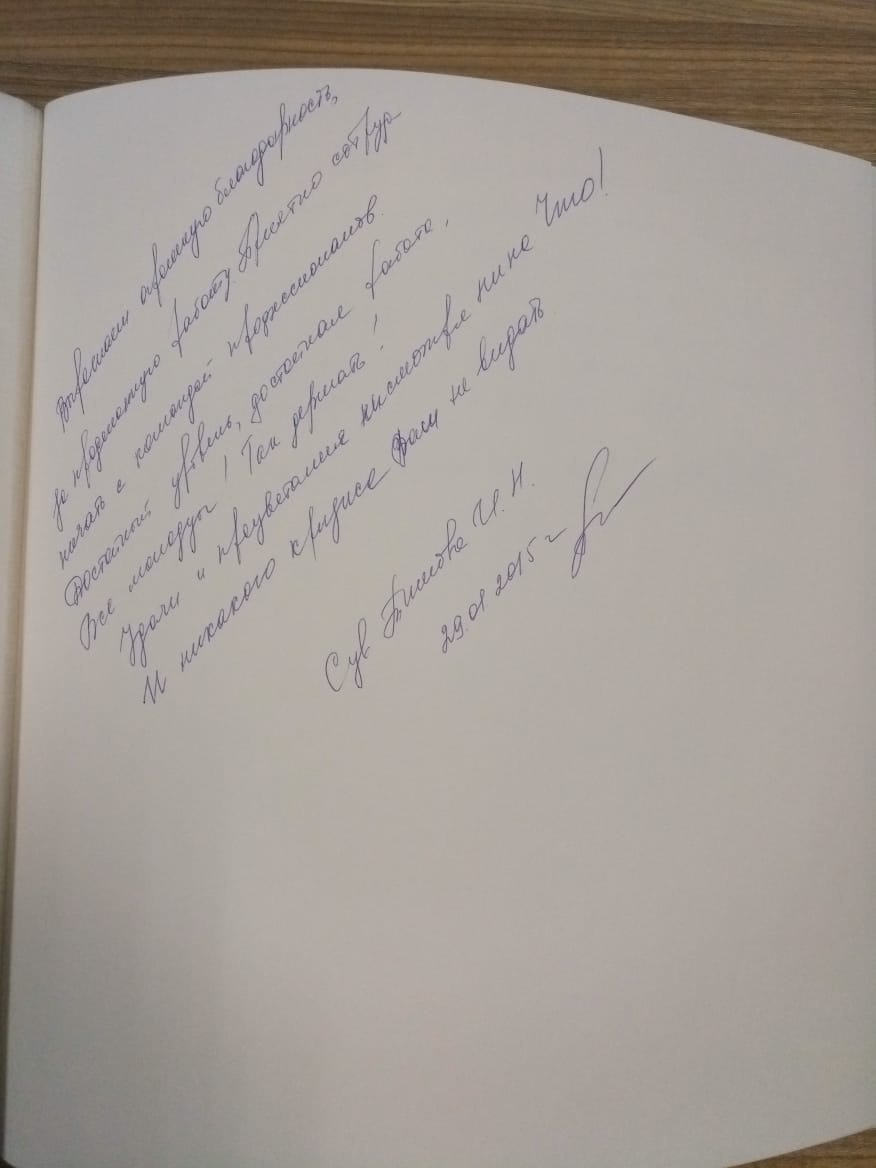 Выражаем огромную благодарность,
за проделанную работу. Приятно сотруд
ничать с командой профессионалов.
Достойный уровень, достойная работа,
Все молодцы! Так держать!
Удачи и процветания несмотря ни на что!
И никакого кризиса Вам не видать
С ув. И. Н.
29.01 2015 г